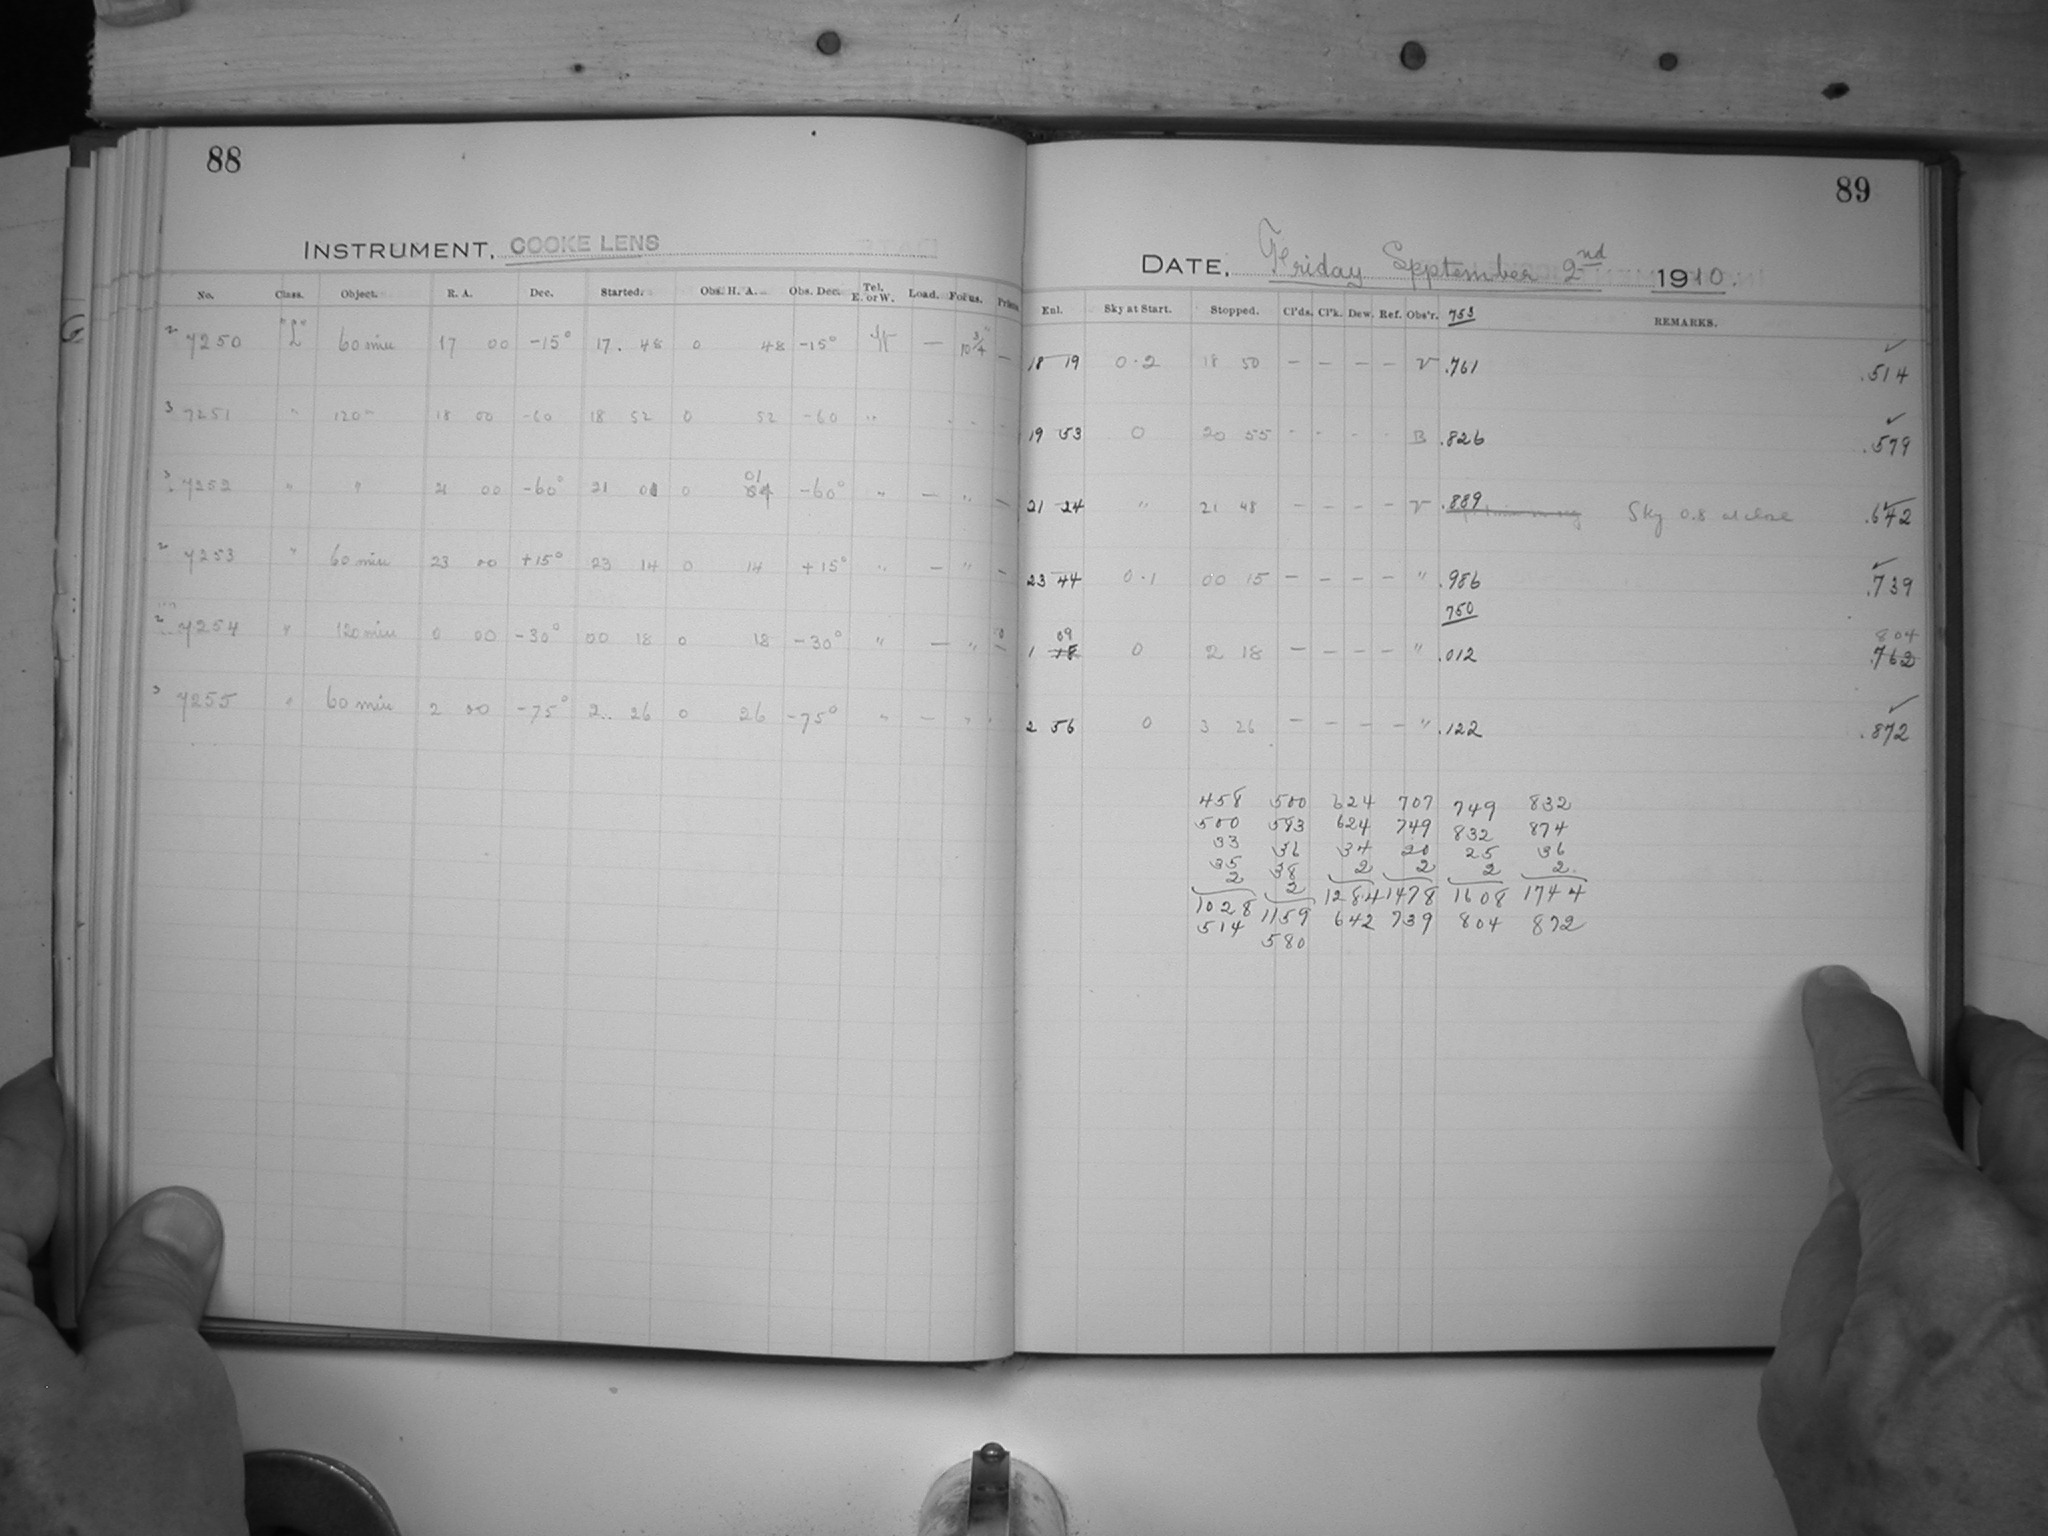 88
INSTRUMENT, COOKE LENS
No. Class. Object. R. A. Dec. Started. Obs. H. A. Obs. Dec. Tel. E. or W. Load. Focus.
2 7250 "L" 60 min 17 00 -15° 17. 48 0 48 -15° W — 10 3/4" —
3 7251 " 120 " 18 00 -60 18 52 0 52 -60 "
3 7252 " " 21 00 -60° 21 01 0 01 -60° " — " —
2 7253 " 60 min 23 00 +15° 23 14 0 14 +15° " — " —
2 7254 " 120 min 0 00 -30° 00 18 0 18 -30° " — " —
3 7255 " 60 min 2 00 -75° 2.. 26 0 26 -75° " — " "
89
DATE, Friday September 2nd 1910.
Enl. Sky at Start. Stopped. Cl'ds. Cl'k. Dew. Ref. Obs'r. 753 REMARKS.
18 19 0.2 18 50 — — — — V .761 .514 ✓
19 53 0 20 55 - - - - B .826 .579 ✓
21 24 " 21 48 — — — — V .889 Sky 0.8 at close .642 ✓
23 44 0.1 00 15 — — — — " .986 .739 ✓
750
1 09 0 2 18 — — — — " .012 804 .762
2 56 0 3 26 — — — — " .122 .872 ✓
458 500 624 707 749 832
500 583 624 749 832 874
33 36 34 20 25 36
35 38 2 2 2 2
2 2 1284 1478 1608 1744
1028 1159 642 739 804 872
514 580